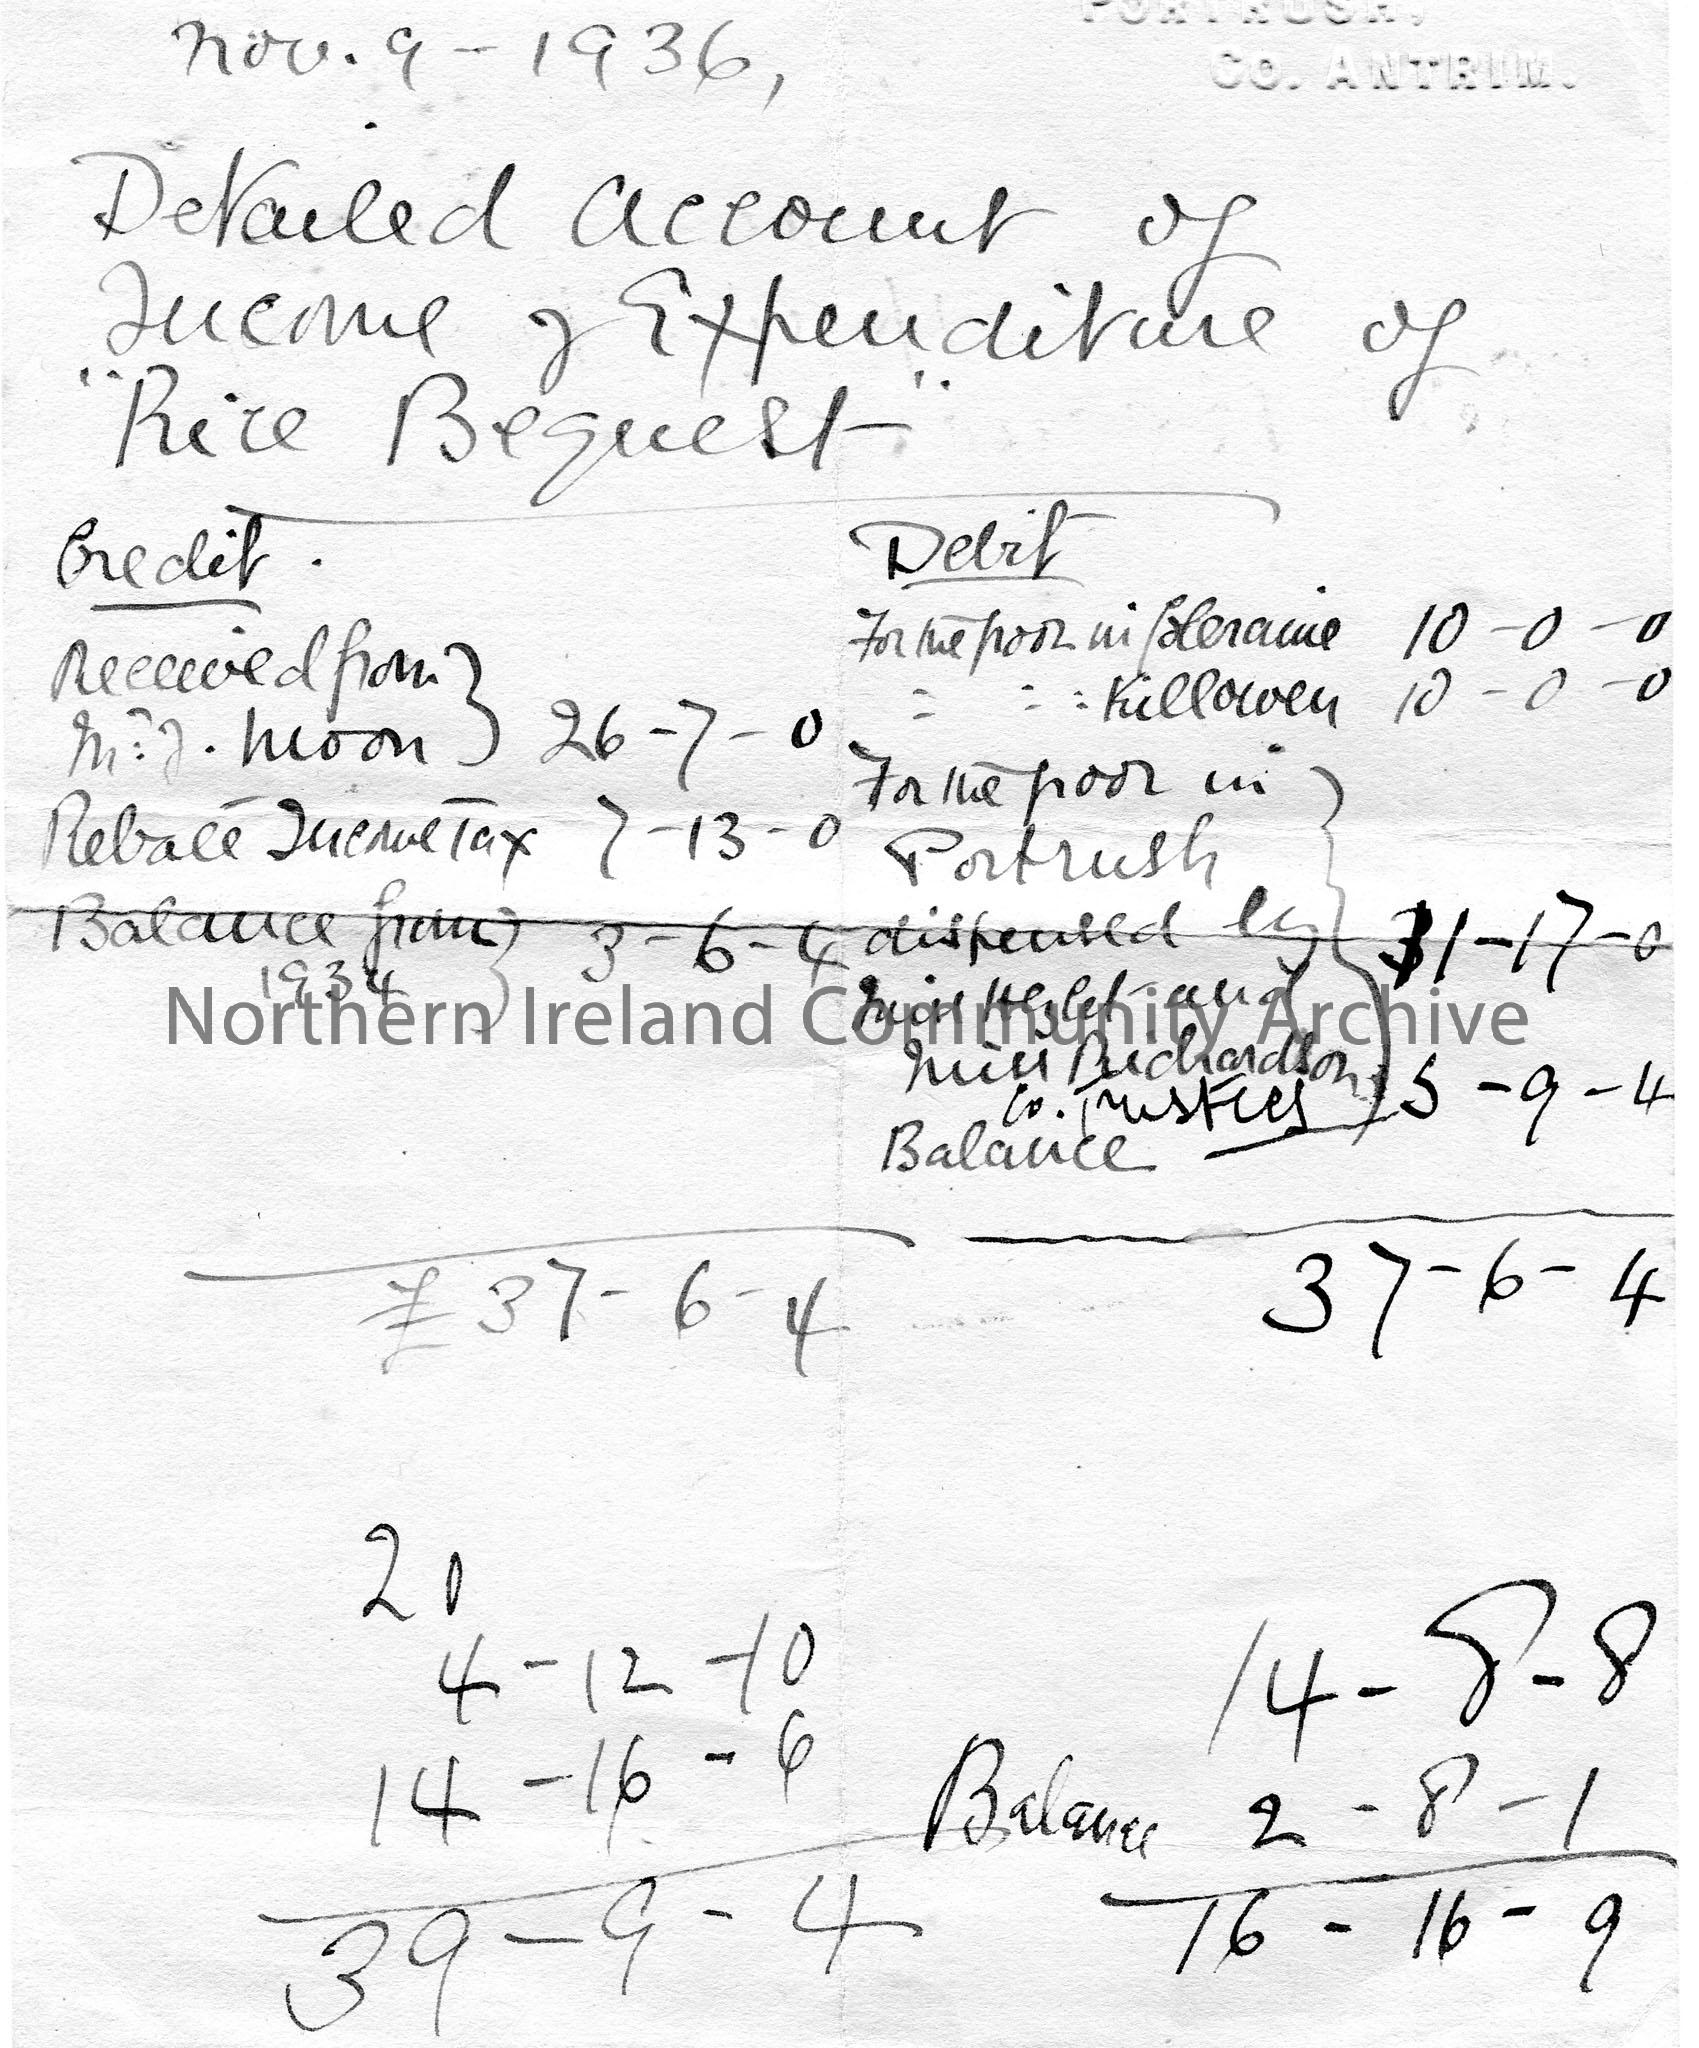 PORTRUSH,
CO. ANTRIM.
Nov. 9 - 1936,
Detailed Account of
Income & Expenditure of
"Rice Bequest"
Credit.
Received from
Mr J. Moon } 26 - 7 - 0
Rebate Income Tax 7 - 13 - 0
Balance from
1934 } 3 - 6 - 4
£ 37 - 6 - 4
Debit
For the poor in Coleraine 10 - 0 - 0
" " " Killowen 10 - 0 - 0
For the poor in
Portrush
dispensed by 11 - 17 - 0
Miss Hezlet and
Miss Richardson
Co. Trustees 5 - 9 - 4
Balance
37 - 6 - 4
20
4 - 12 - 10
14 - 16 - 6
39 - 9 - 4
14 - 8 - 8
Balance 2 - 8 - 1
16 - 16 - 9
Northern Ireland Community Archive